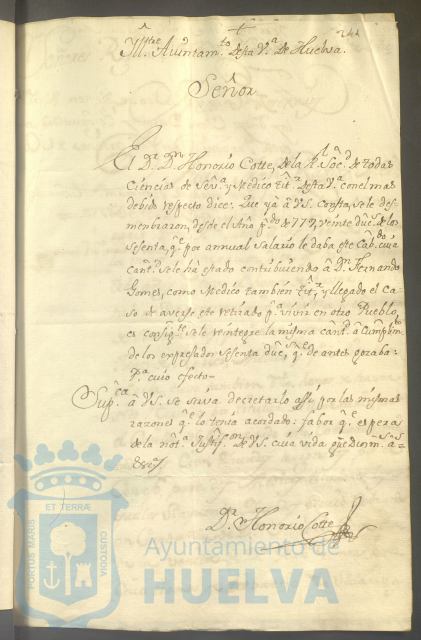 +
241
Ill.tre Ayuntam.to desta V.a de Huelva.
Señor
El D.r D.n Honorio Cotte, de la R.l Soc.d de todas
Ciencias de Sev.a y Medico tit.r desta V.a con el mas
debido respecto dice: Que ya à V.S. consta, se le des-
membraron, desde el Año p.do de 779, veinte duc.s de los
sesenta, q.e por annual salario le daba este Cab.do, cuia
cant.d se le ha estado contribuiendo à D.n Fernando
Gomes, como Medico tambien tit.r, y llegado el ca
so de averse este retirado p.a vivir en otro Pueblo,
es consig.te se le reintegre la misma cant.d à cumplim.to
de los expresados sesenta duc.s, q.e de antes gozaba:
P.a cuio efecto—
Sup.ca à V.S. se sirva decretarlo assi, por las mismas
razones q.e lo tenia acordado: fabor q.e espera
de la not.a Justif.on de V.S. cuia vida gue Dios m.s a.s
D.r Honorio Cotte
ET TERRÆ
PORTUS MARIS
CUSTODIA
Ayuntamiento de
HUELVA